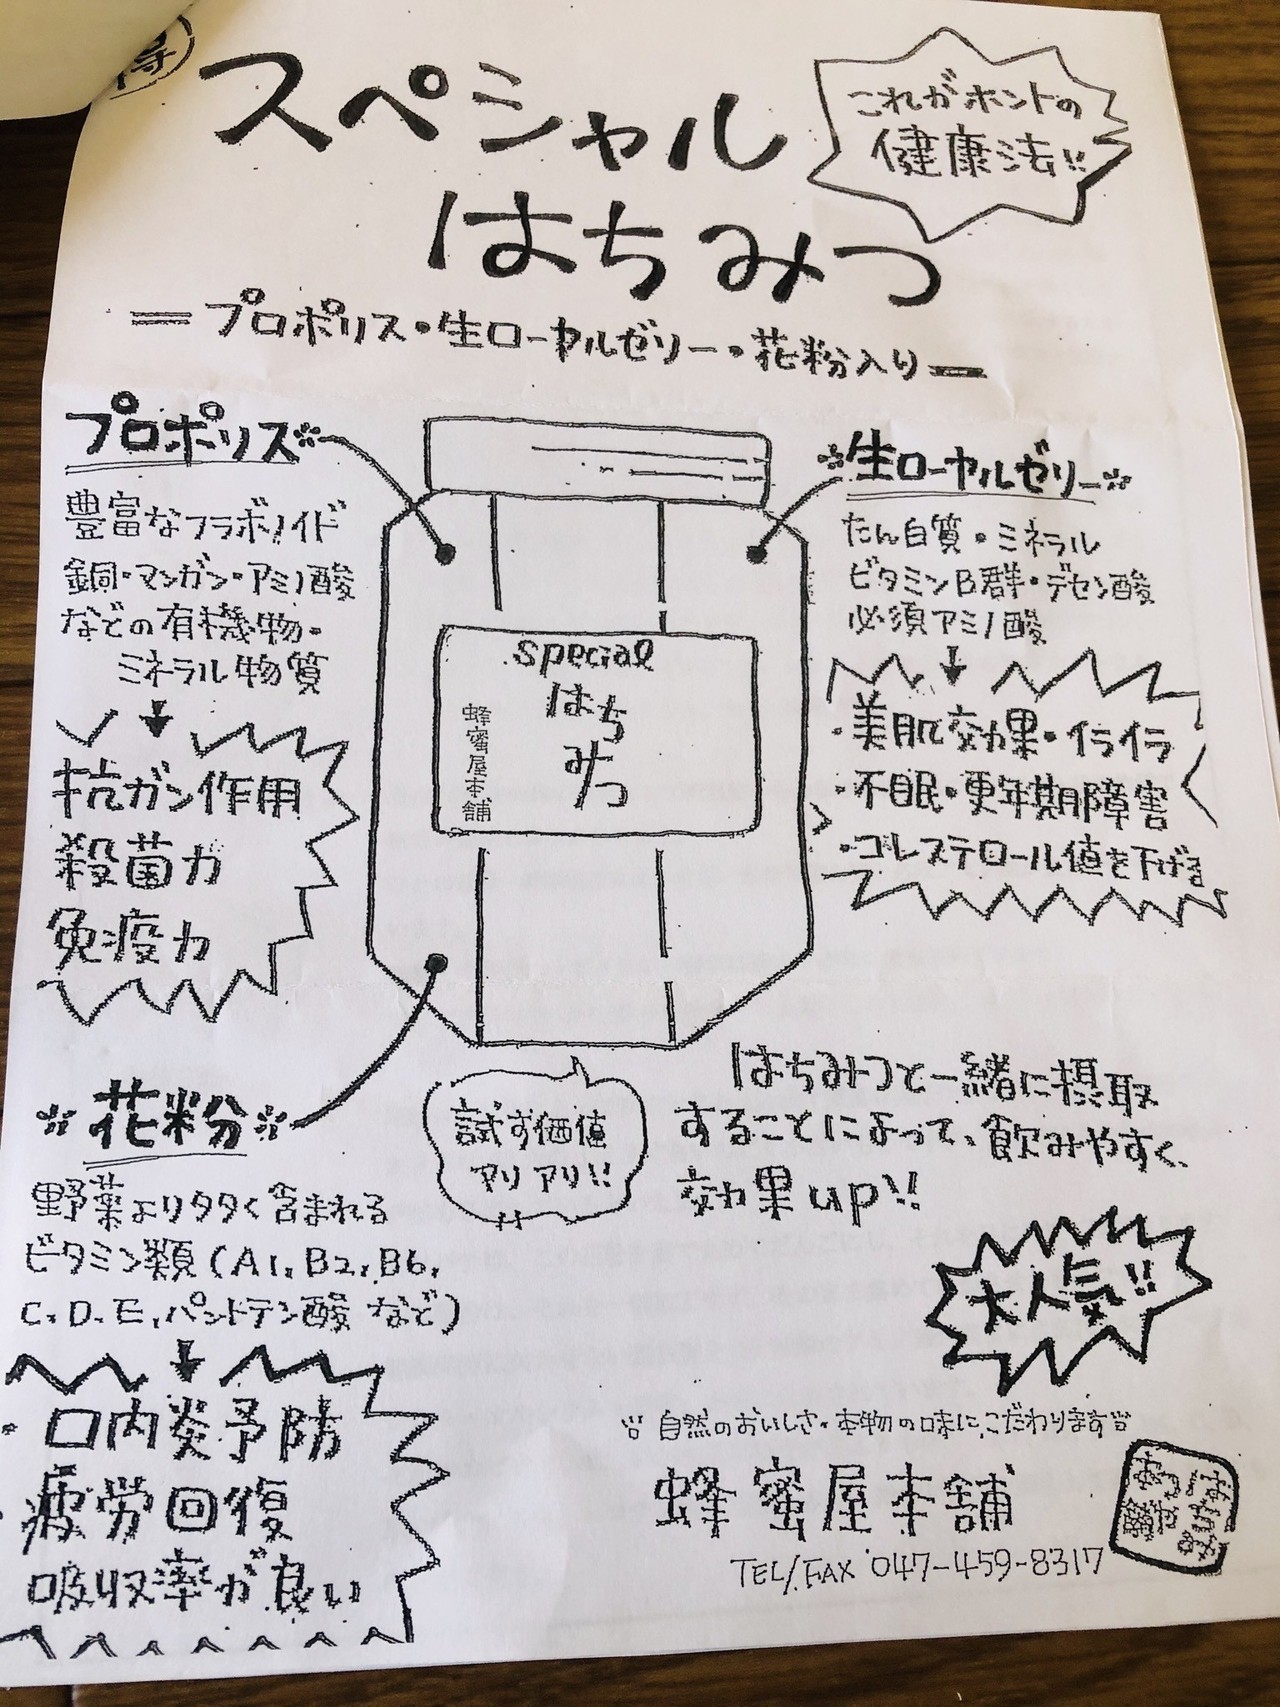 得
スペシャル
はちみつ
これがホントの
健康法!!
＝プロポリス・生ローヤルゼリー・花粉入り＝
プロポリス
豊富なフラボノイド
銅・マンガン・アミノ酸
などの有機物・
ミネラル物質
抗ガン作用
殺菌力
免疫力
生ローヤルゼリー
たん白質・ミネラル
ビタミンB群・デセン酸
必須アミノ酸
・美肌効果・イライラ
・不眠・更年期障害
・コレステロール値を下げる
special
はち
みつ
蜂蜜屋本舗
花粉
野菜より多く含まれる
ビタミン類(A1,B2,B6,
C,D,E,パントテン酸など)
・口内炎予防
・疲労回復
吸収率が良い
試す価値
アリアリ!!
はちみつと一緒に摂取
することによって、飲みやすく、
効果up!!
大人気!!
自然のおいしさ・本物の味にこだわります
蜂蜜屋本舗
TEL/FAX 047-459-8317